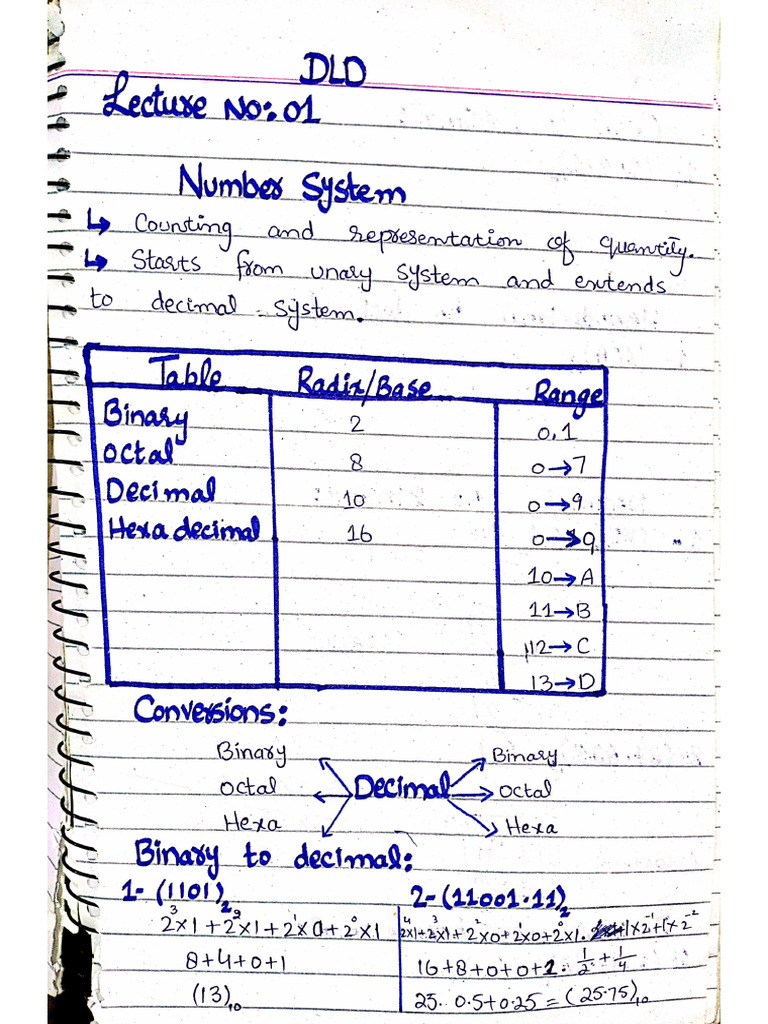 DLD
Lecture No: 01
Number System
↳ Counting and representation of quantity.
↳ Starts from unary system and extends
to decimal system.
Table Radix/Base Range
Binary 2 0,1
Octal 8 0→7
Decimal 10 0→9
Hexa decimal 16 0→9
10→A
11→B
12→C
13→D
Conversions:
Binary Binary
Octal Decimal Octal
Hexa Hexa
Binary to decimal:
1- (1101)₂ 2- (11001.11)₂
2³×1+2²×1+2¹×0+2⁰×1 2⁴×1+2³×1+2²×0+2¹×0+2⁰×1. +1×2⁻¹+1×2⁻²
8+4+0+1 16+8+0+0+1. 1/2 + 1/4
(13)₁₀ 25. 0.5+0.25=(25.75)₁₀